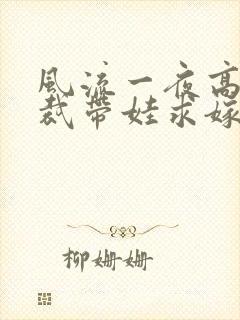 风流一夜高
裁带娃求嫁
柳姗姗